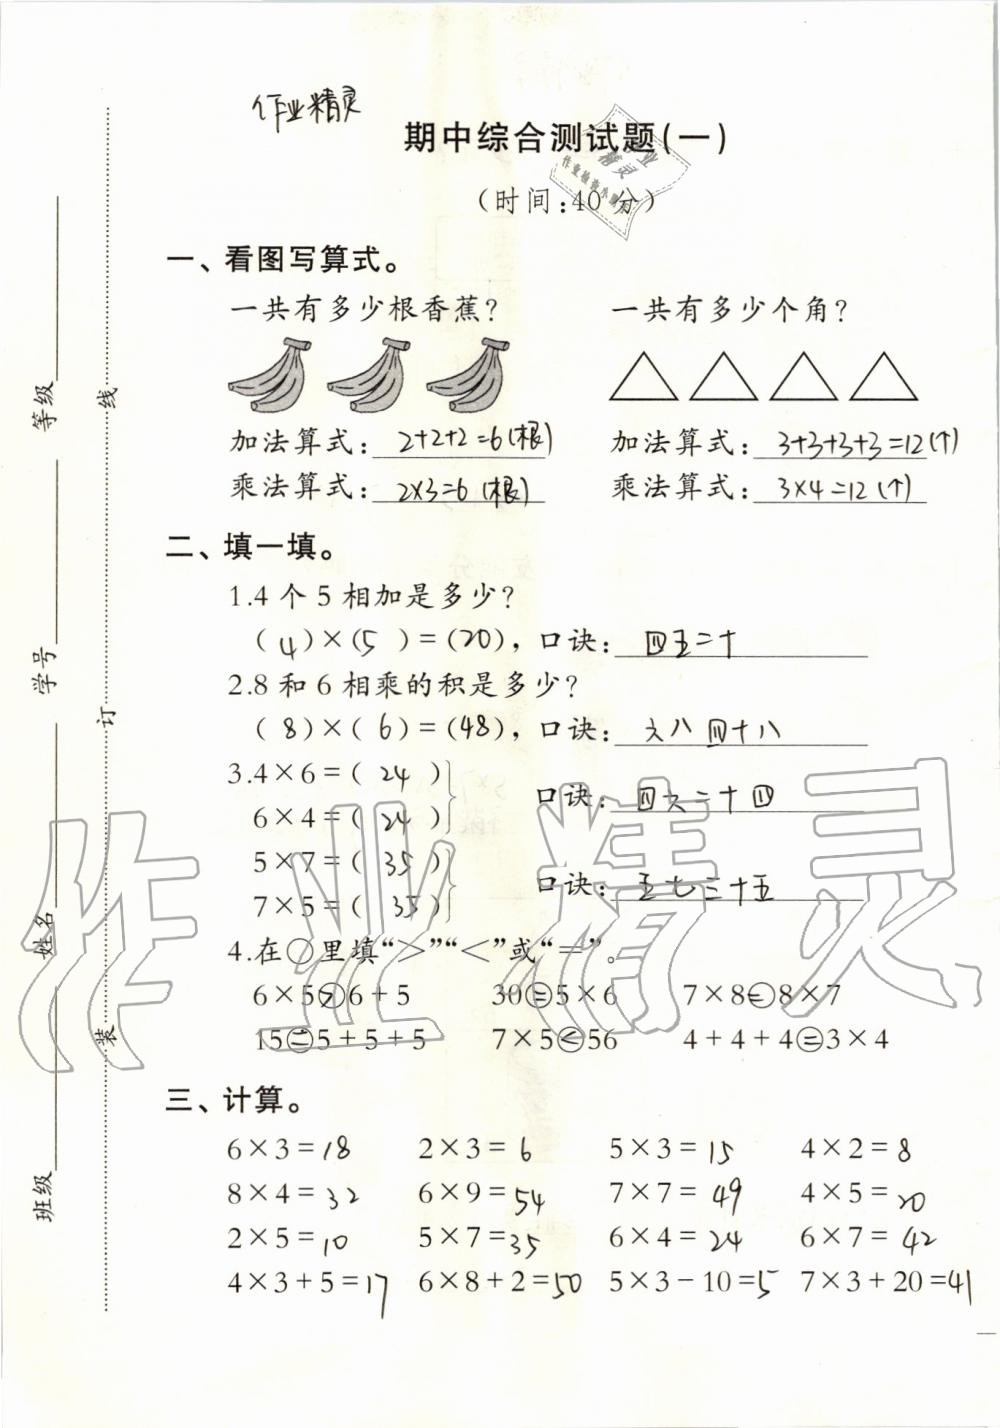 作业精灵
期中综合测试题(一)
(时间:40分)
一、看图写算式。
一共有多少根香蕉? 一共有多少个角?
加法算式: 2+2+2=6(根) 加法算式: 3+3+3+3=12(个)
乘法算式: 2×3=6(根) 乘法算式: 3×4=12(个)
二、填一填。
1.4个5相加是多少?
(4)×(5)=(20),口诀: 四五二十
2.8和6相乘的积是多少?
(8)×(6)=(48),口诀: 六八四十八
3.4×6=(24)
6×4=(24)
口诀: 四六二十四
5×7=(35)
7×5=(35)
口诀: 五七三十五
4.在○里填“>”“<”或“=”。
6×5>6+5 30=5×6 7×8=8×7
15=5+5+5 7×5<56 4+4+4=3×4
三、计算。
6×3=18 2×3=6 5×3=15 4×2=8
8×4=32 6×9=54 7×7=49 4×5=20
2×5=10 5×7=35 6×4=24 6×7=42
4×3+5=17 6×8+2=50 5×3-10=5 7×3+20=41
班级 姓名 学号 等级
装 订 线
作业精灵
作业精灵